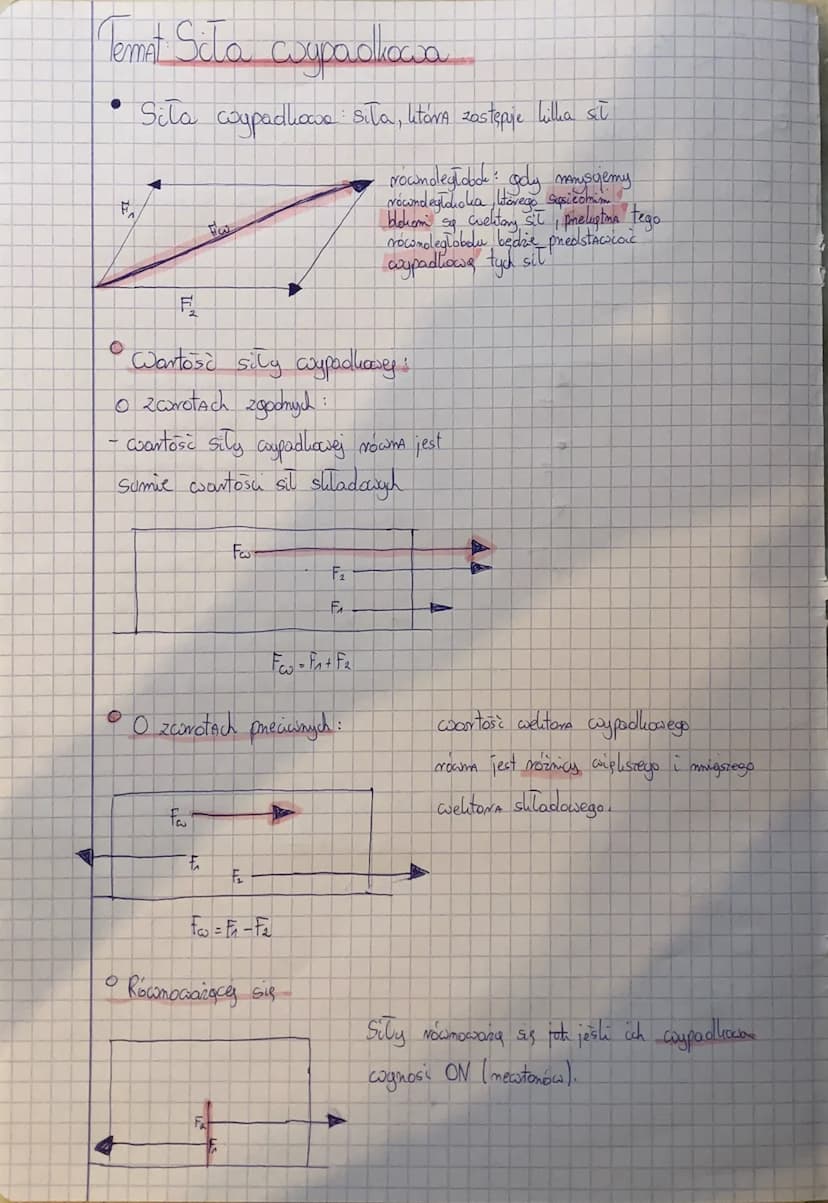 Temat: Siła wypadkowa
• Siła wypadkowa: siła, która zastępuje kilka sił
równoległobok: gdy narysujemy
równoległoboka, którego sąsiednimi
bokami są wektory sił, przekątna tego
równoległoboku będzie przedstawiać
wypadkową tych sił
F₁
Fw
F₂
Wartość siły wypadkowej:
O zwrotach zgodnych:
- wartość siły wypadkowej równa jest
sumie wartości sił składowych
Fw
F₂
F₁
Fw = F₁ + F₂
O zwrotach przeciwnych:
wartość wektora wypadkowego
równa jest różnicy większego i mniejszego
wektora składowego.
Fw
F₁
F₂
Fw = F₁ - F₂
Równoważącej się
Siły równoważą się jak jeśli ich wypadkowa
wynosi 0N (newtonów).
F₂
F₁